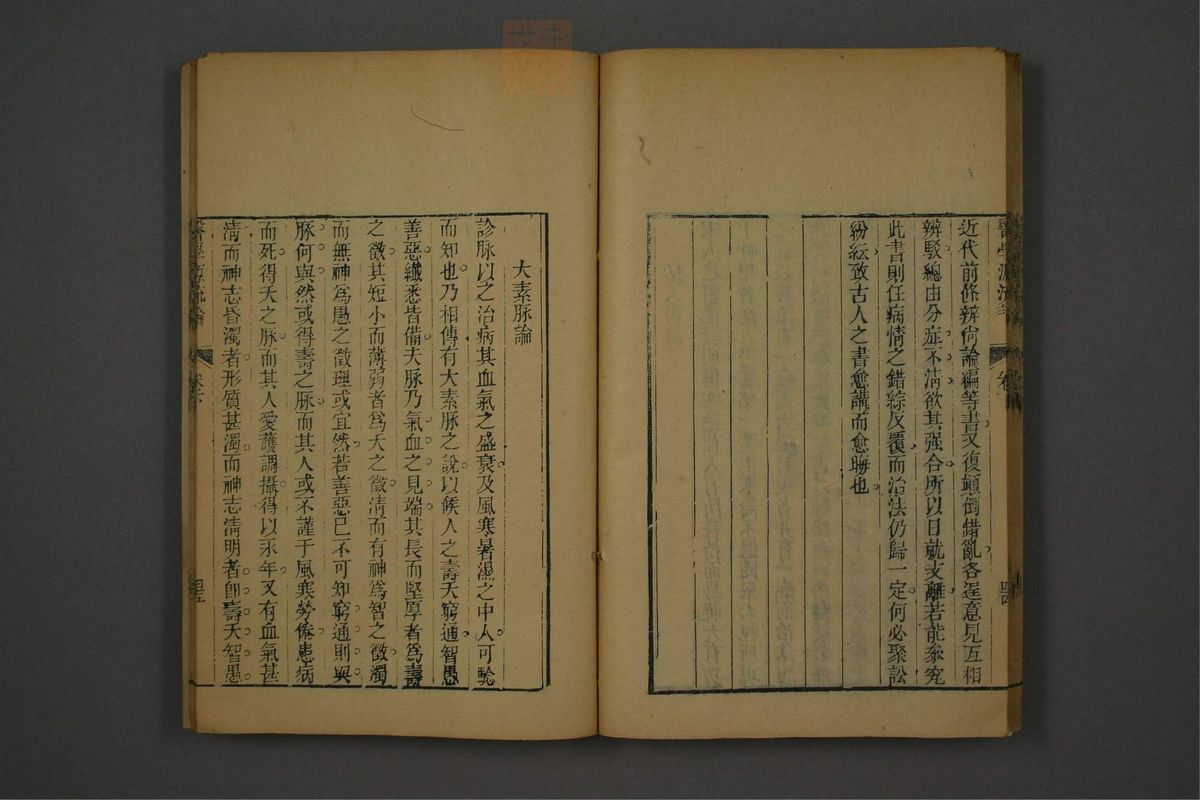 近代前條辨尙論編等書又復顚倒錯亂各逞意見互相
辨駁總由分症不淸欲其强合所以日就支離若能叅究
此書則任病情之錯綜反覆而治法仍歸一定何必聚訟
紛紜致古人之書愈講而愈晦也
大素脉論
診脉以之治病其血氣之盛衰及風寒暑濕之中人可騐
而知也乃相傳有大素脉之說以候人之壽夭窮通智愚
善惡纖悉皆備夫脉乃氣血之見端其長而堅厚者爲壽
之徵其短小而薄弱者爲夭之徵淸而有神爲智之徵濁
而無神爲愚之徵理或宜然若善惡已不可知窮通則與
脉何與然或得壽之脉而其人或不謹于風寒勞倦患病
而死得夭之脉而其人愛護調攝得以永年又有血氣甚
淸而神志昏濁者形質甚濁而神志淸明者卽壽夭智愚
醫學源流論
卷六